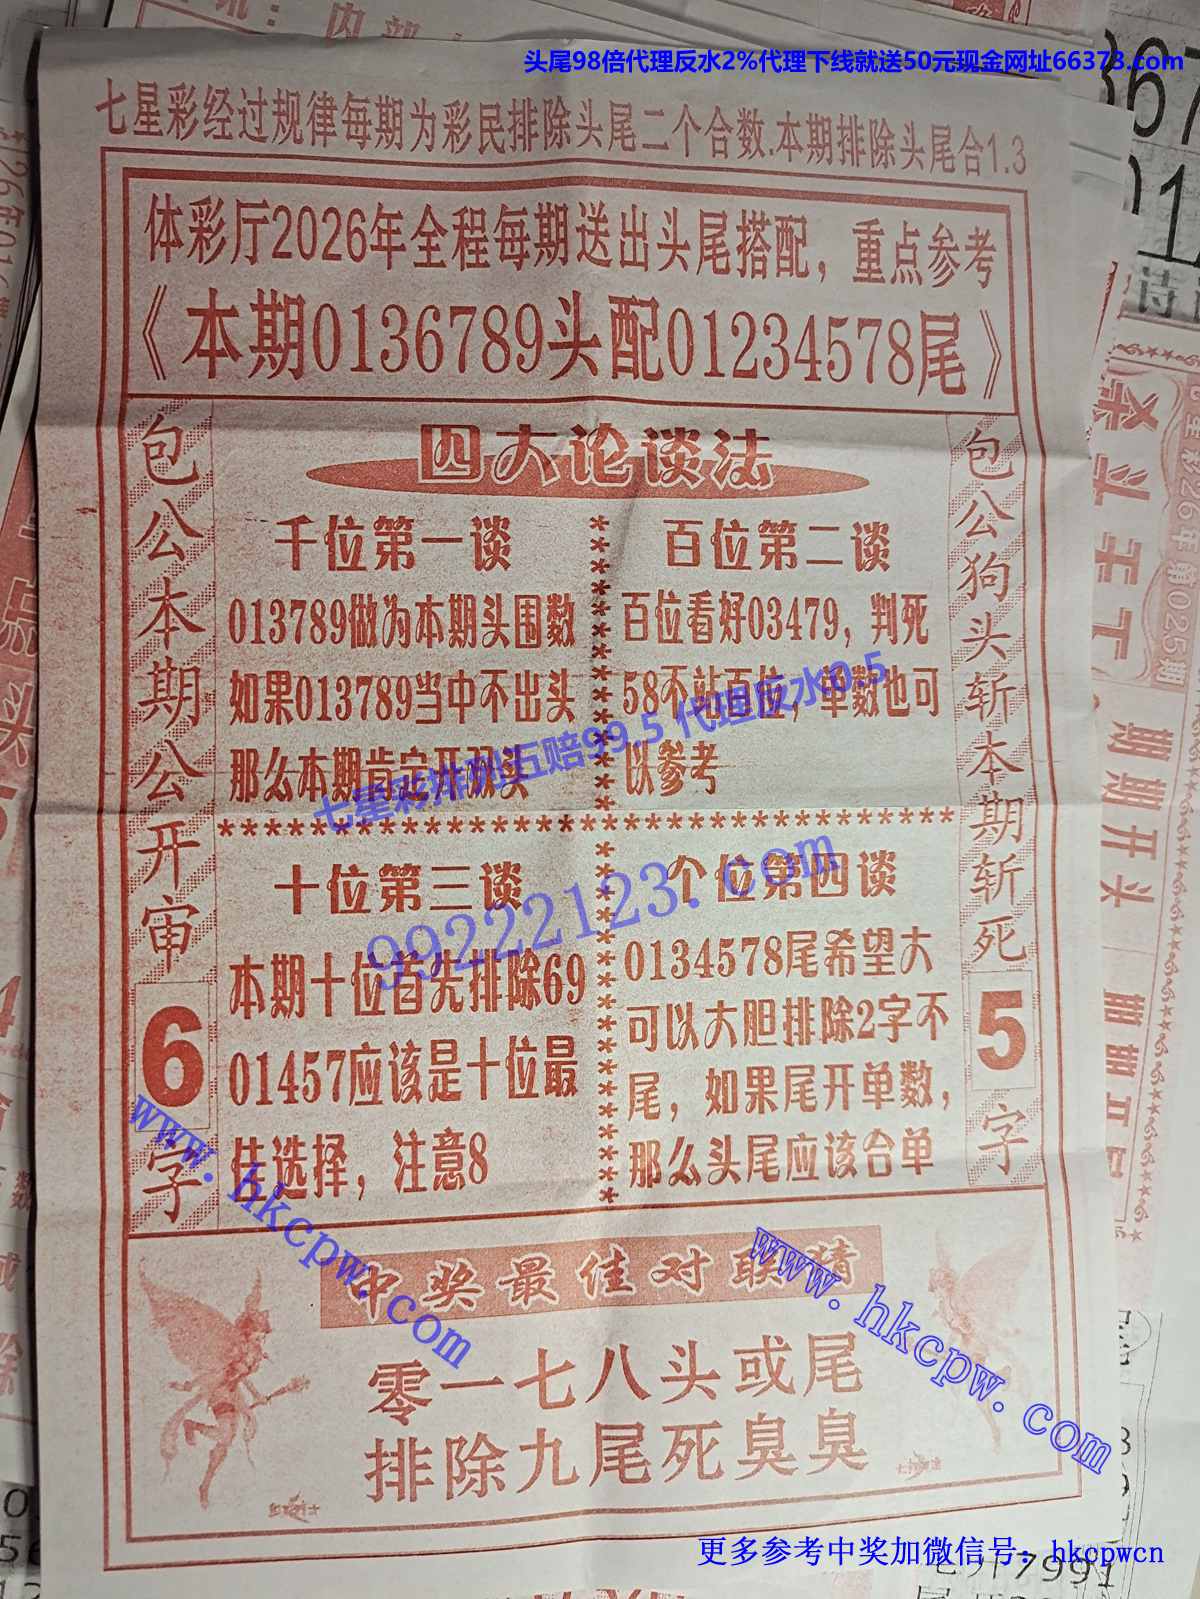 头尾98倍代理反水2%代理下线就送50元现金网址66373.com
七星彩经过规律每期为彩民排除头尾二个合数.本期排除头尾合1.3
体彩厅2026年全程每期送出头尾搭配，重点参考
《本期0136789头配01234578尾》
包公本期公开审6字
四大论谈法
千位第一谈
013789做为本期头围数
如果013789当中不出头
那么本期肯定开双头
百位第二谈
百位看好03479，判死
58不站百位，单数也可
以参考
七星彩排列五赔99.5 代理反水0.5
99222123.com
十位第三谈
本期十位首先排除69
01457应该是十位最
佳选择，注意8
个位第四谈
0134578尾希望大
可以大胆排除2字不
尾，如果尾开单数，
那么头尾应该合单
包公狗头斩本期斩死5字
www.hkcpw.com
www.hkcpw.com
中奖最佳对联猜
零一七八头或尾
排除九尾死臭臭
更多参考中奖加微信号：hkcpwcn
期期开头
7991